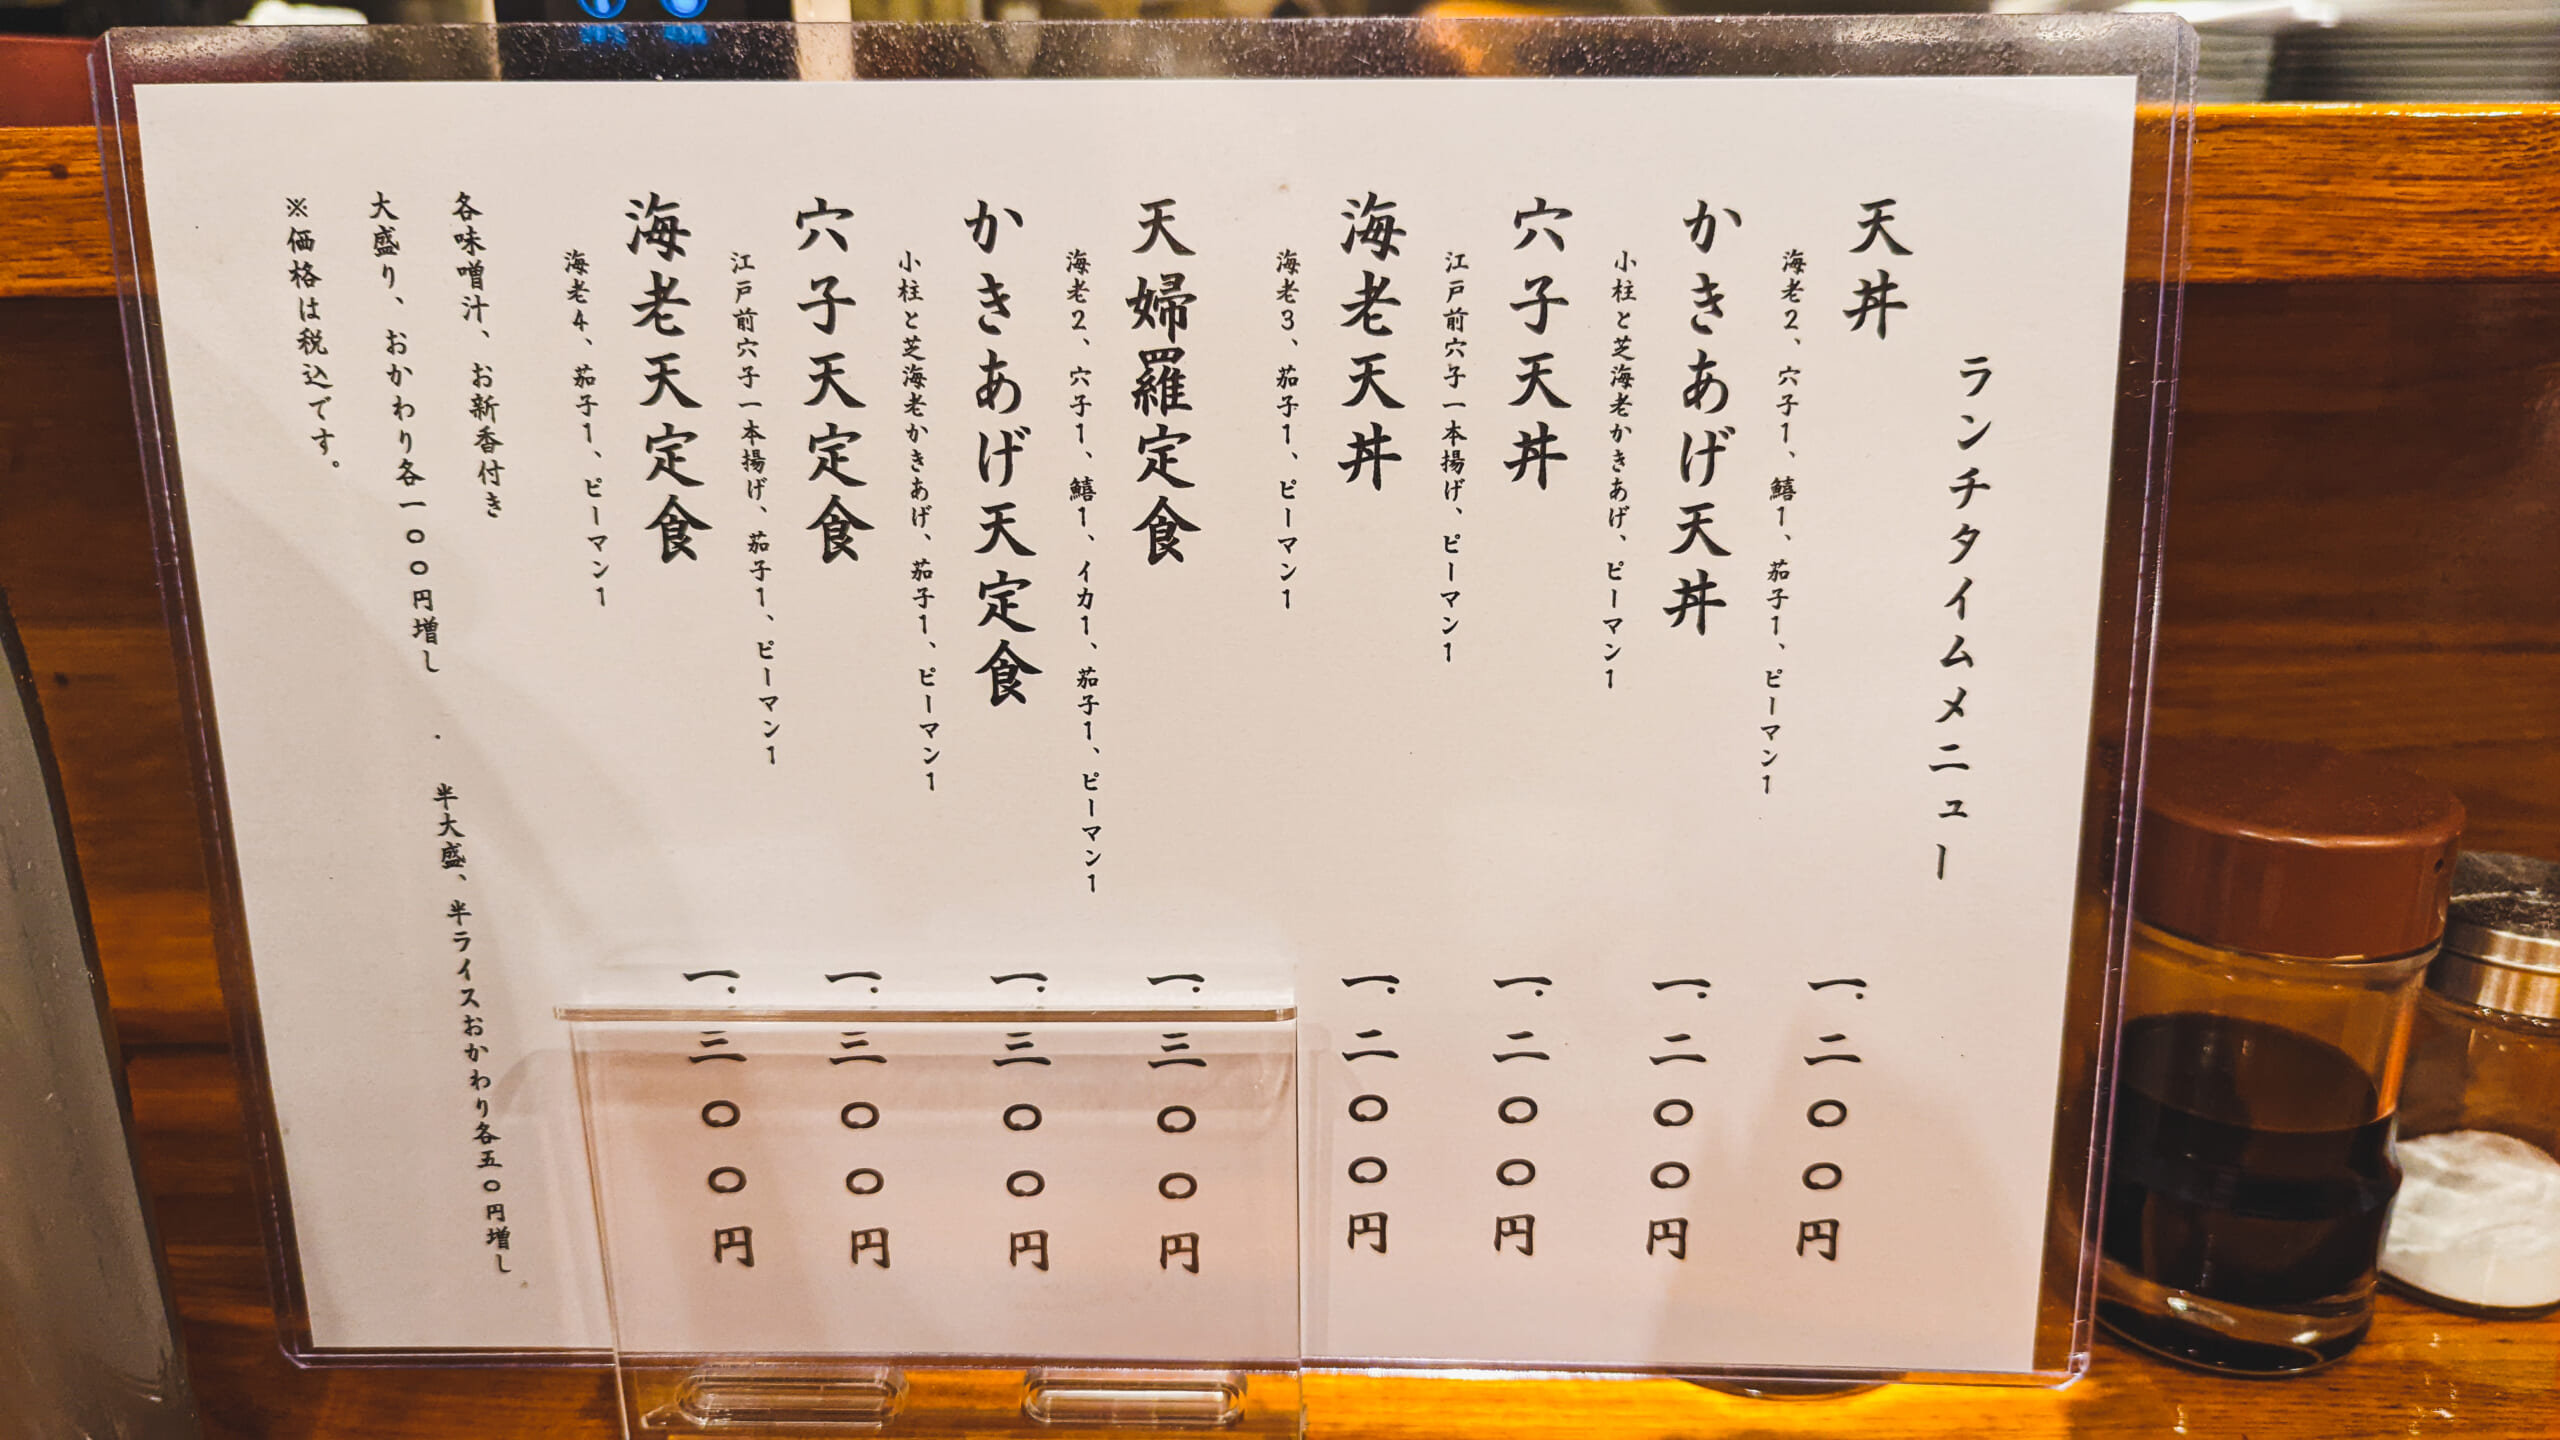 ランチタイムメニュー
天丼 一.二〇〇円
海老2、穴子1、鱚1、茄子1、ピーマン1
かきあげ天丼 一.二〇〇円
小柱と芝海老かきあげ、ピーマン1
穴子天丼 一.二〇〇円
江戸前穴子一本揚げ、ピーマン1
海老天丼 一.二〇〇円
海老3、茄子1、ピーマン1
天婦羅定食 一.三〇〇円
海老2、穴子1、鱚1、イカ1、茄子1、ピーマン1
かきあげ天定食 一.三〇〇円
小柱と芝海老かきあげ、茄子1、ピーマン1
穴子天定食 一.三〇〇円
江戸前穴子一本揚げ、茄子1、ピーマン1
海老天定食 一.三〇〇円
海老4、茄子1、ピーマン1
各味噌汁、お新香付き
大盛り、おかわり各一〇〇円増し . 半大盛、半ライスおかわり各五〇円増し
※価格は税込です。